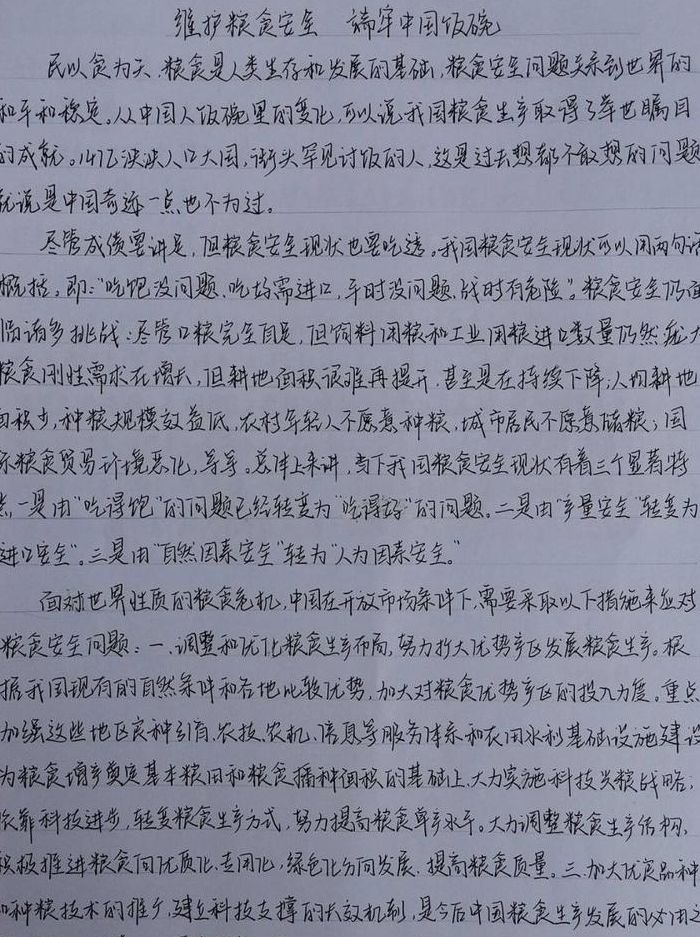 维护粮食安全 端牢中国饭碗
民以食为天,粮食是人类生存和发展的基础,粮食安全问题关系到世界的
和平和稳定。从中国人饭碗里的变化,可以说我国粮食生产取得了举世瞩目
的成就。14亿泱泱人口大国,街头罕见讨饭的人,这是过去想都不敢想的问题
就说是中国奇迹一点也不为过。
尽管成绩要讲足,但粮食安全现状也要吃透。我国粮食安全现状可以用两句话
概括。即:“吃饱没问题、吃好需进口,平时没问题、战时有危险”。粮食安全仍面
临诸多挑战:尽管口粮完全自足,但饲料用粮和工业用粮进口数量仍然庞大
粮食刚性需求在增长,但耕地面积很难再提升,甚至是在持续下降;人均耕地
面积少,种粮规模效益低,农村年轻人不愿意种粮,城市居民不愿意储粮;国
际粮食贸易环境恶化,等等。总体上来讲,当下我国粮食安全现状有着三个显著特
点,一是由“吃得饱”的问题已经转变为“吃得好”的问题。二是由“产量安全”转变为
进口安全”。三是由“自然因素安全”转为“人为因素安全。”
面对世界性质的粮食危机,中国在开放市场条件下,需要采取以下措施来应对
粮食安全问题:一、调整和优化粮食生产布局,努力扩大优势产区发展粮食生产。根
据我国现有的自然条件和各地比较优势,加大对粮食优势产区的投入力度。重点
加强这些地区良种引育、农技、农机、信息等服务体系和农田水利基础设施建设
为粮食增产奠定基本粮田和粮食播种面积的基础上,大力实施科技兴粮战略,
依靠科技进步,转变粮食生产方式,努力提高粮食单产水平。大力调整粮食生产结构,
积极推进粮食向优质化、专用化,绿色化方向发展,提高粮食质量。三、加大优良品种
和种粮技术的推广,建立科技支撑的长效机制,是今后中国粮食生产发展的必由之